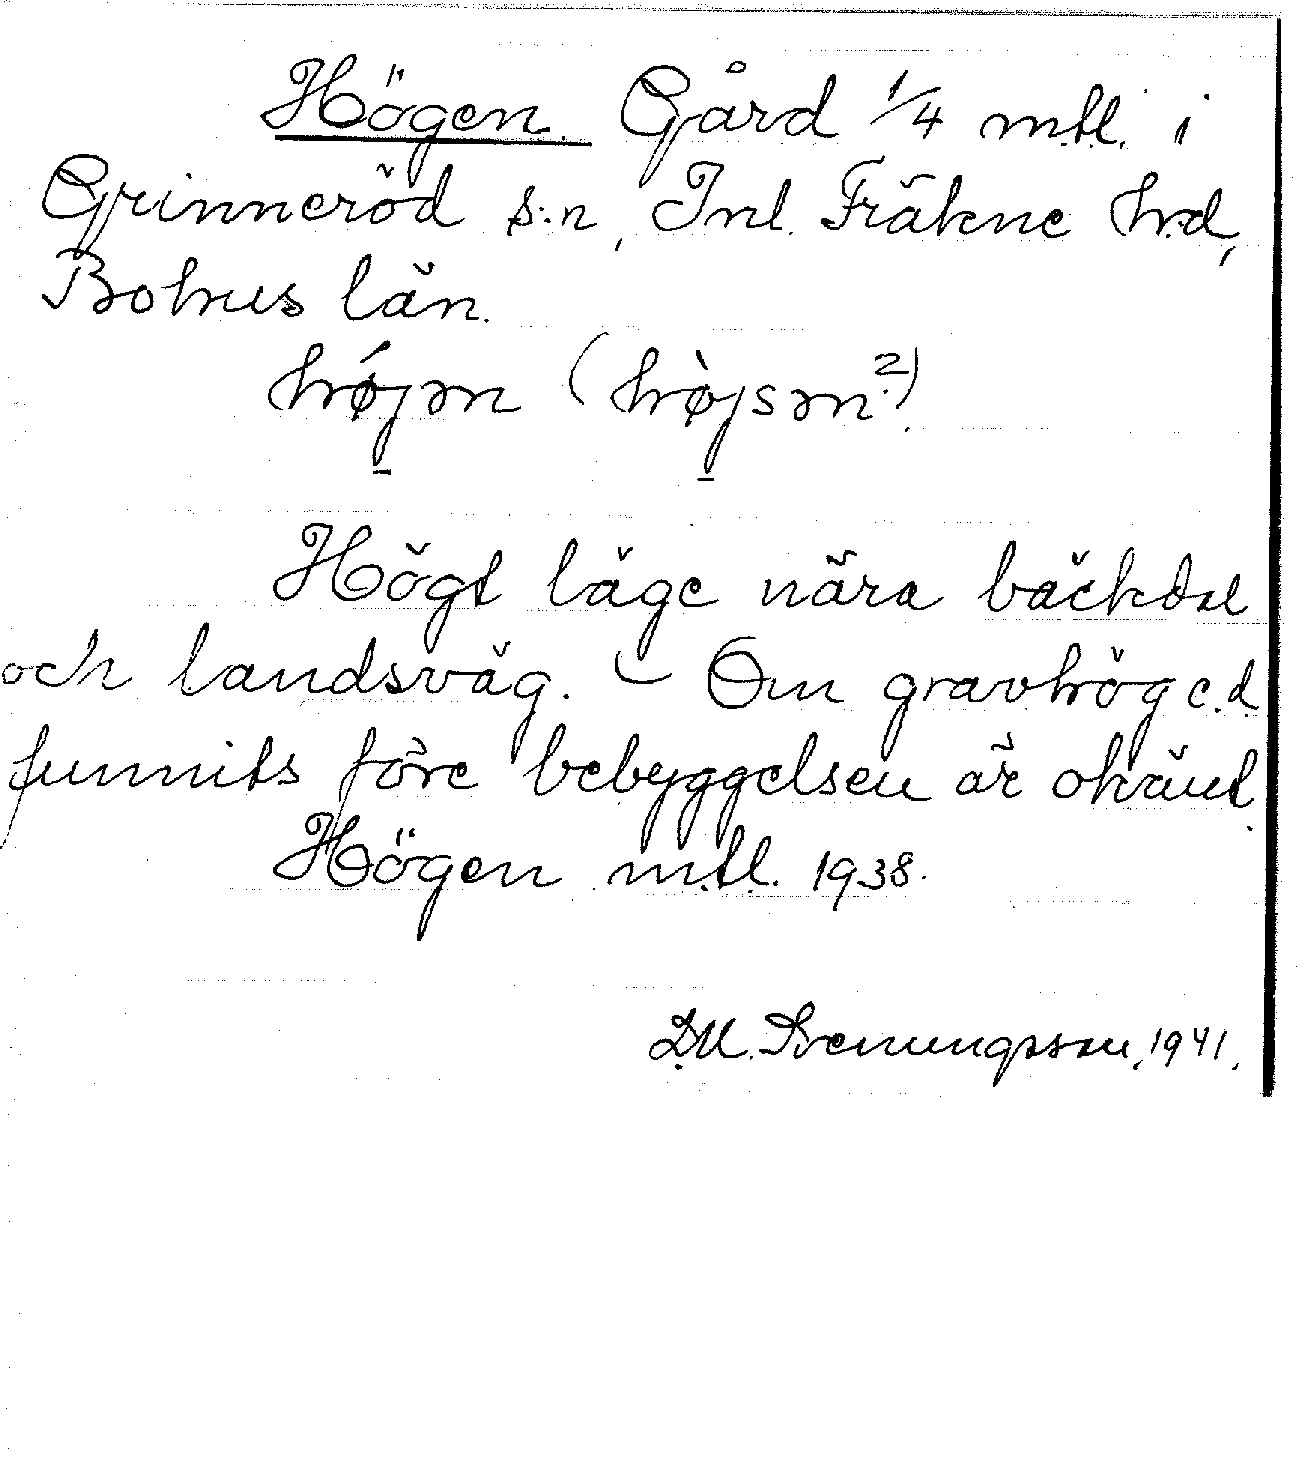 Högen. Gård 1/4 mtl. i
Grinneröd s:n, Inl. Fräkne hd,
Bohus län.
hǿjən (hø̀jsən 2).
Högt läge nära bäckdal
och landsväg. – Om gravhög e.d.
funnits före bebyggelsen är okänt.
Högen mtl. 1938.
D.M. Svenungsson, 1941.